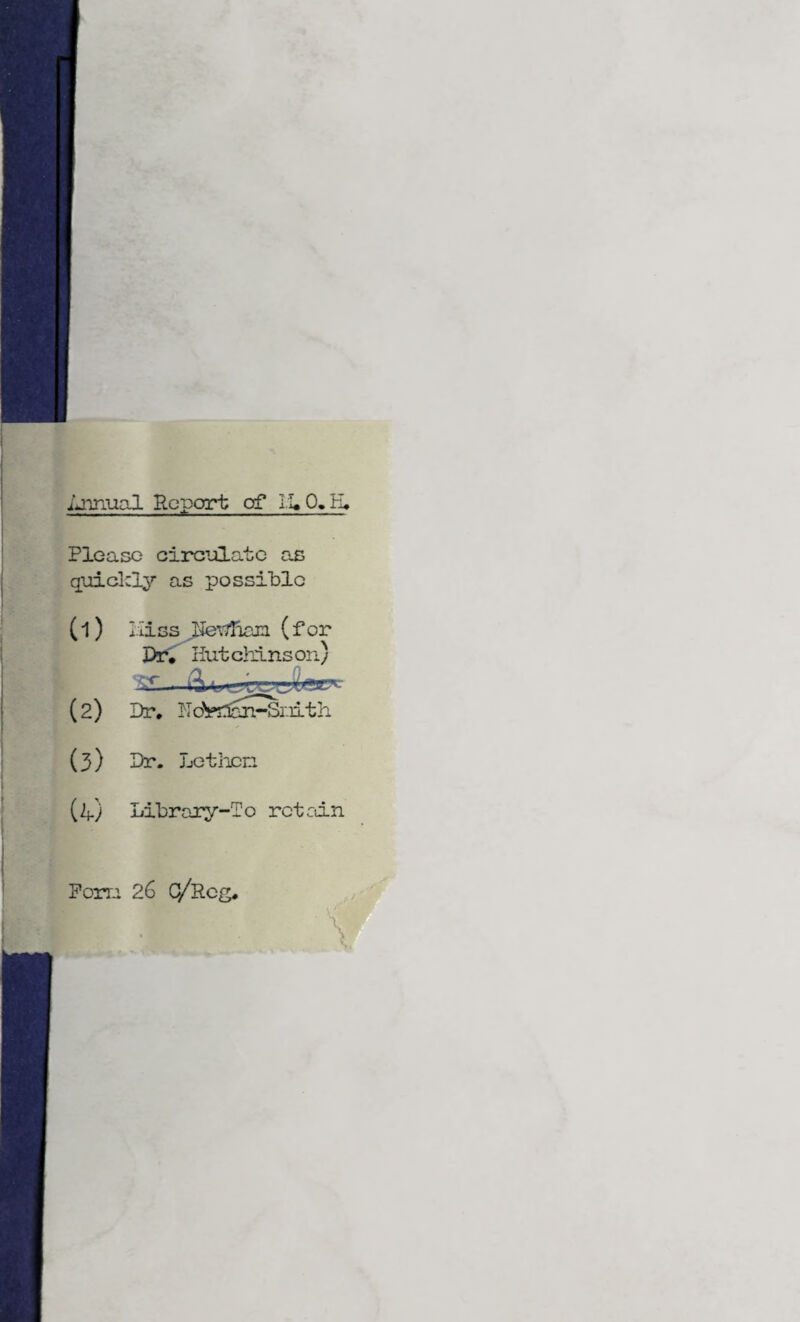 Annual Report of M.O.H.
Please circulate as
quickly as possible
(1) Miss Newham (for
Dr. Hutchinson)
(2) Dr. Norman-Smith
(3) Dr. Lethem
(4) Library-To retain
Form 26 C/Reg.